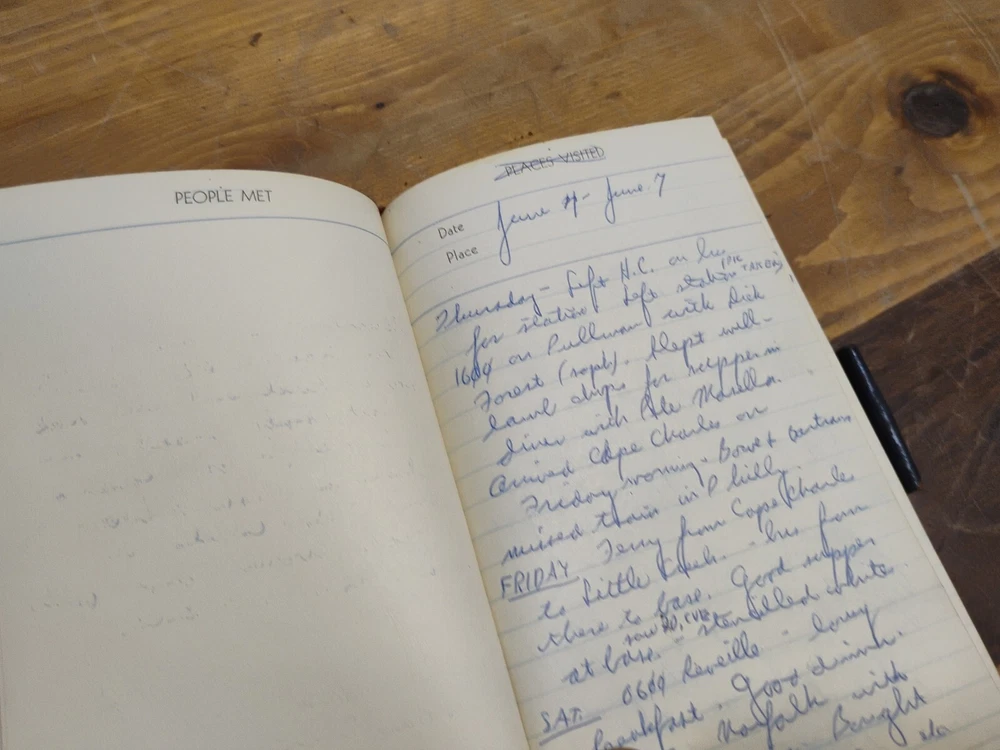 PEOPLE MET
PLACES VISITED
Date June 4 - June 7
Place
Thursday - Left H.C. on bus
for station Left station
1600 on Pullman with Dick
Forest (soph). Slept well -
lamb chops for supper in
diner with Pete
Arrived Cape Charles on
Friday morning - Bowe +
missed train in Philly
FRIDAY Ferry from Cape Charles
to Little Creek. - bus from
there to base. Good supper
at base. - stencilled whites.
SAT. 0600 Reveille - lousy
breakfast. Good dinner.
Norfolk with
Bought